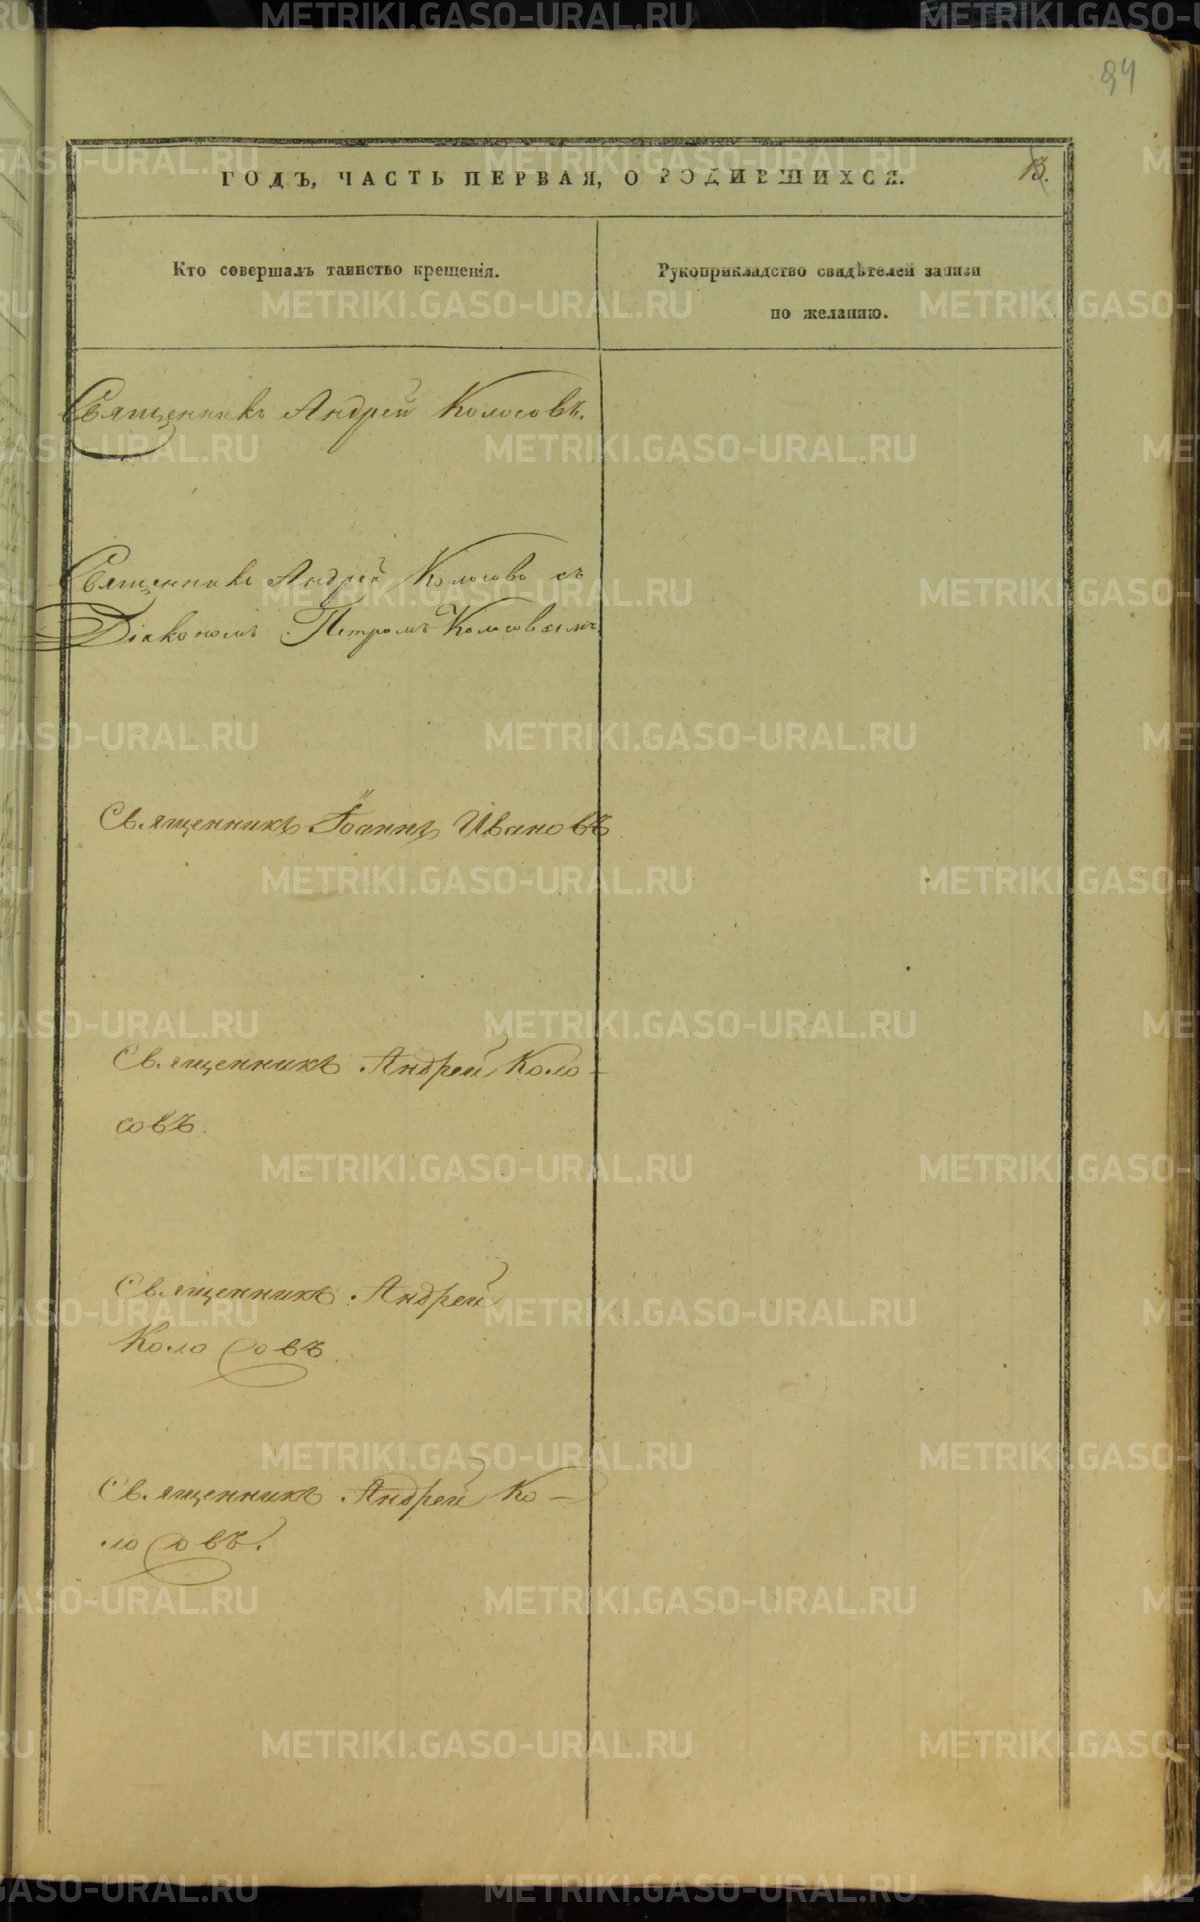 94
ГОДЪ, ЧАСТЬ ПЕРВАЯ, О РОДИВШИХСЯ.
13.
Кто совершалъ таинство крещенія.
Рукоприкладство свидѣтелей записи
по желанію.
Священникъ Андрей Колосовъ.
Священникъ Андрей Колосовъ съ
Діакономъ Петромъ Колосовымъ
Священникъ Іоаннъ Ивановъ
Священникъ Андрей Коло-
совъ.
Священникъ Андрей
Колосовъ.
Священникъ Андрей Ко-
лосовъ.
METRIKI.GASO-URAL.RU